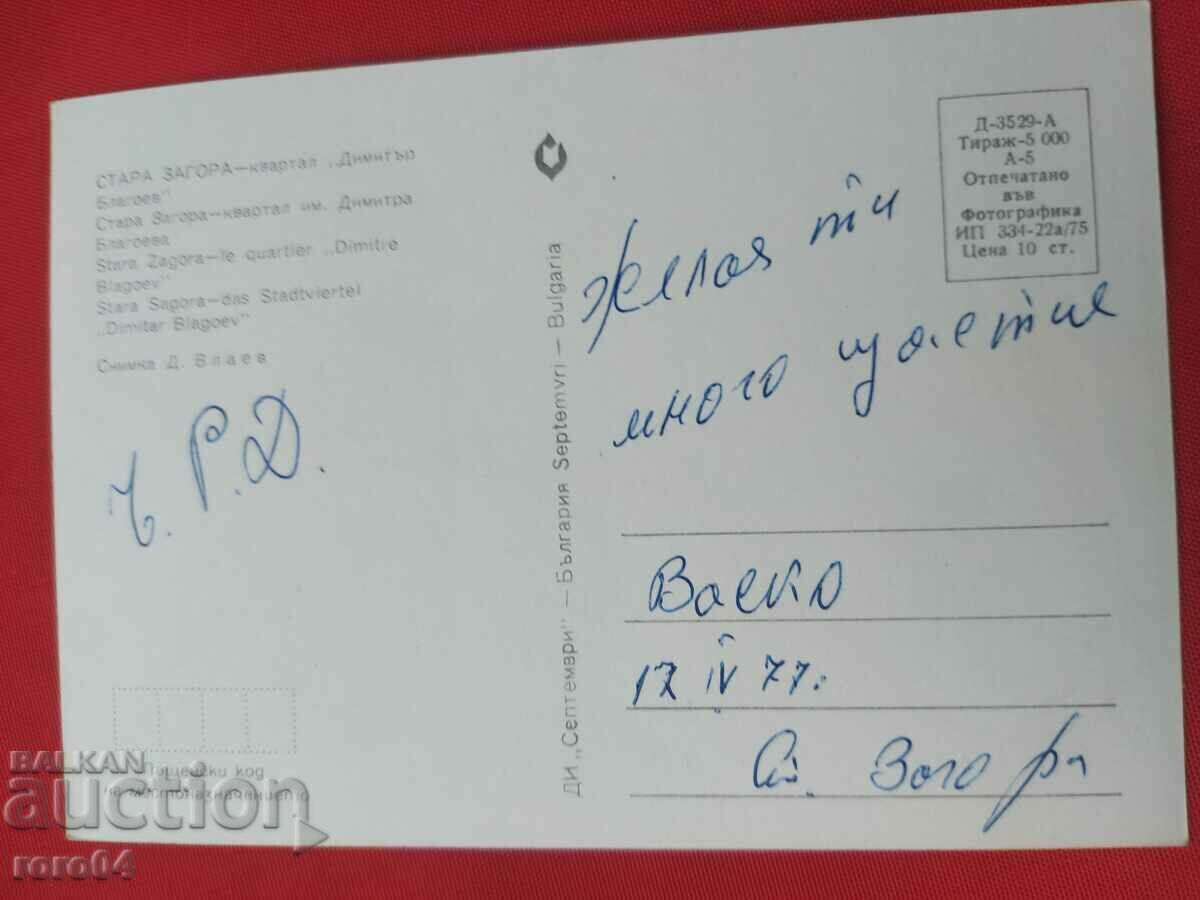 СТАРА ЗАГОРА—квартал „Димитър
Благоев"
Стара Загора—квартал им. Димитра
Благоева
Stara Zagora—le quartier „Dimitre
Blagoev"
Stara Sagora—das Stadtviertel
„Dimitar Blagoev"
Снимка Д. Влаев
Ч. Р. Д.
Пощенски код
на местоназначението
ДИ „Септември" — България Septemvri — Bulgaria
Д-3529-А
Тираж-5 000
А-5
Отпечатано
във
Фотографика
ИП 334-22а/75
Цена 10 ст.
Желая ти
много щастие
Васко
17 IV 77.
Ст. Загора
BALKAN
auction
roro04